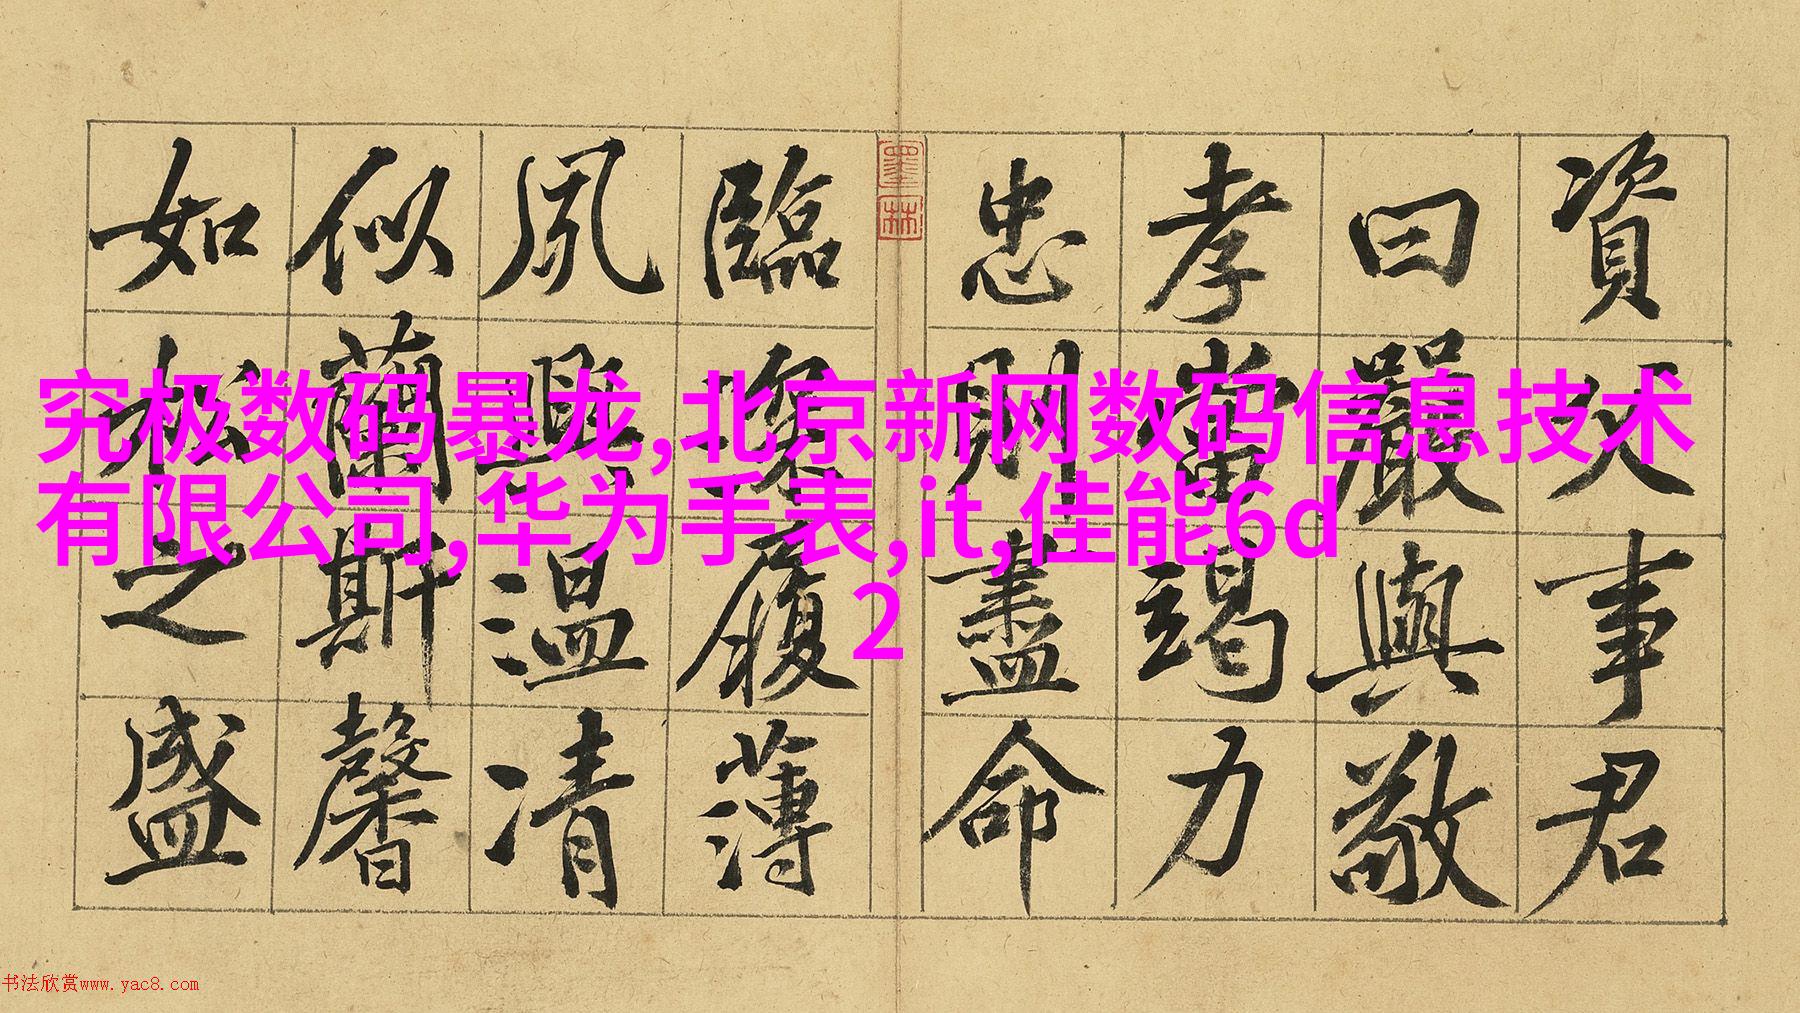 資父事君
曰嚴與敬
孝當竭力
忠則盡命
臨深履薄
夙興溫凊
似蘭斯馨
如松之盛
墨林
究极数码暴龙,北京新网数码信息技术
有限公司,华为手表,it,佳能6d
2
书法欣赏www.yac8.com